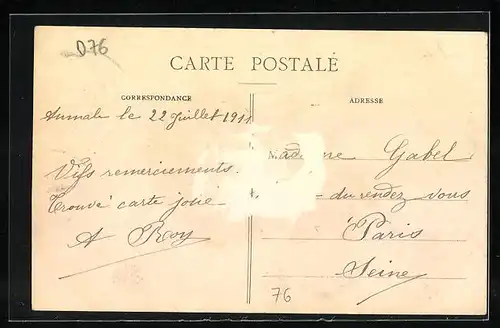 D76
CARTE POSTALE
CORRESPONDANCE
ADRESSE
Aumale le 22 juillet 1911
Vifs remerciements.
Trouvé carte jolie
A Roy
Madame Gabel
du rendez vous
à Paris
Seine
76